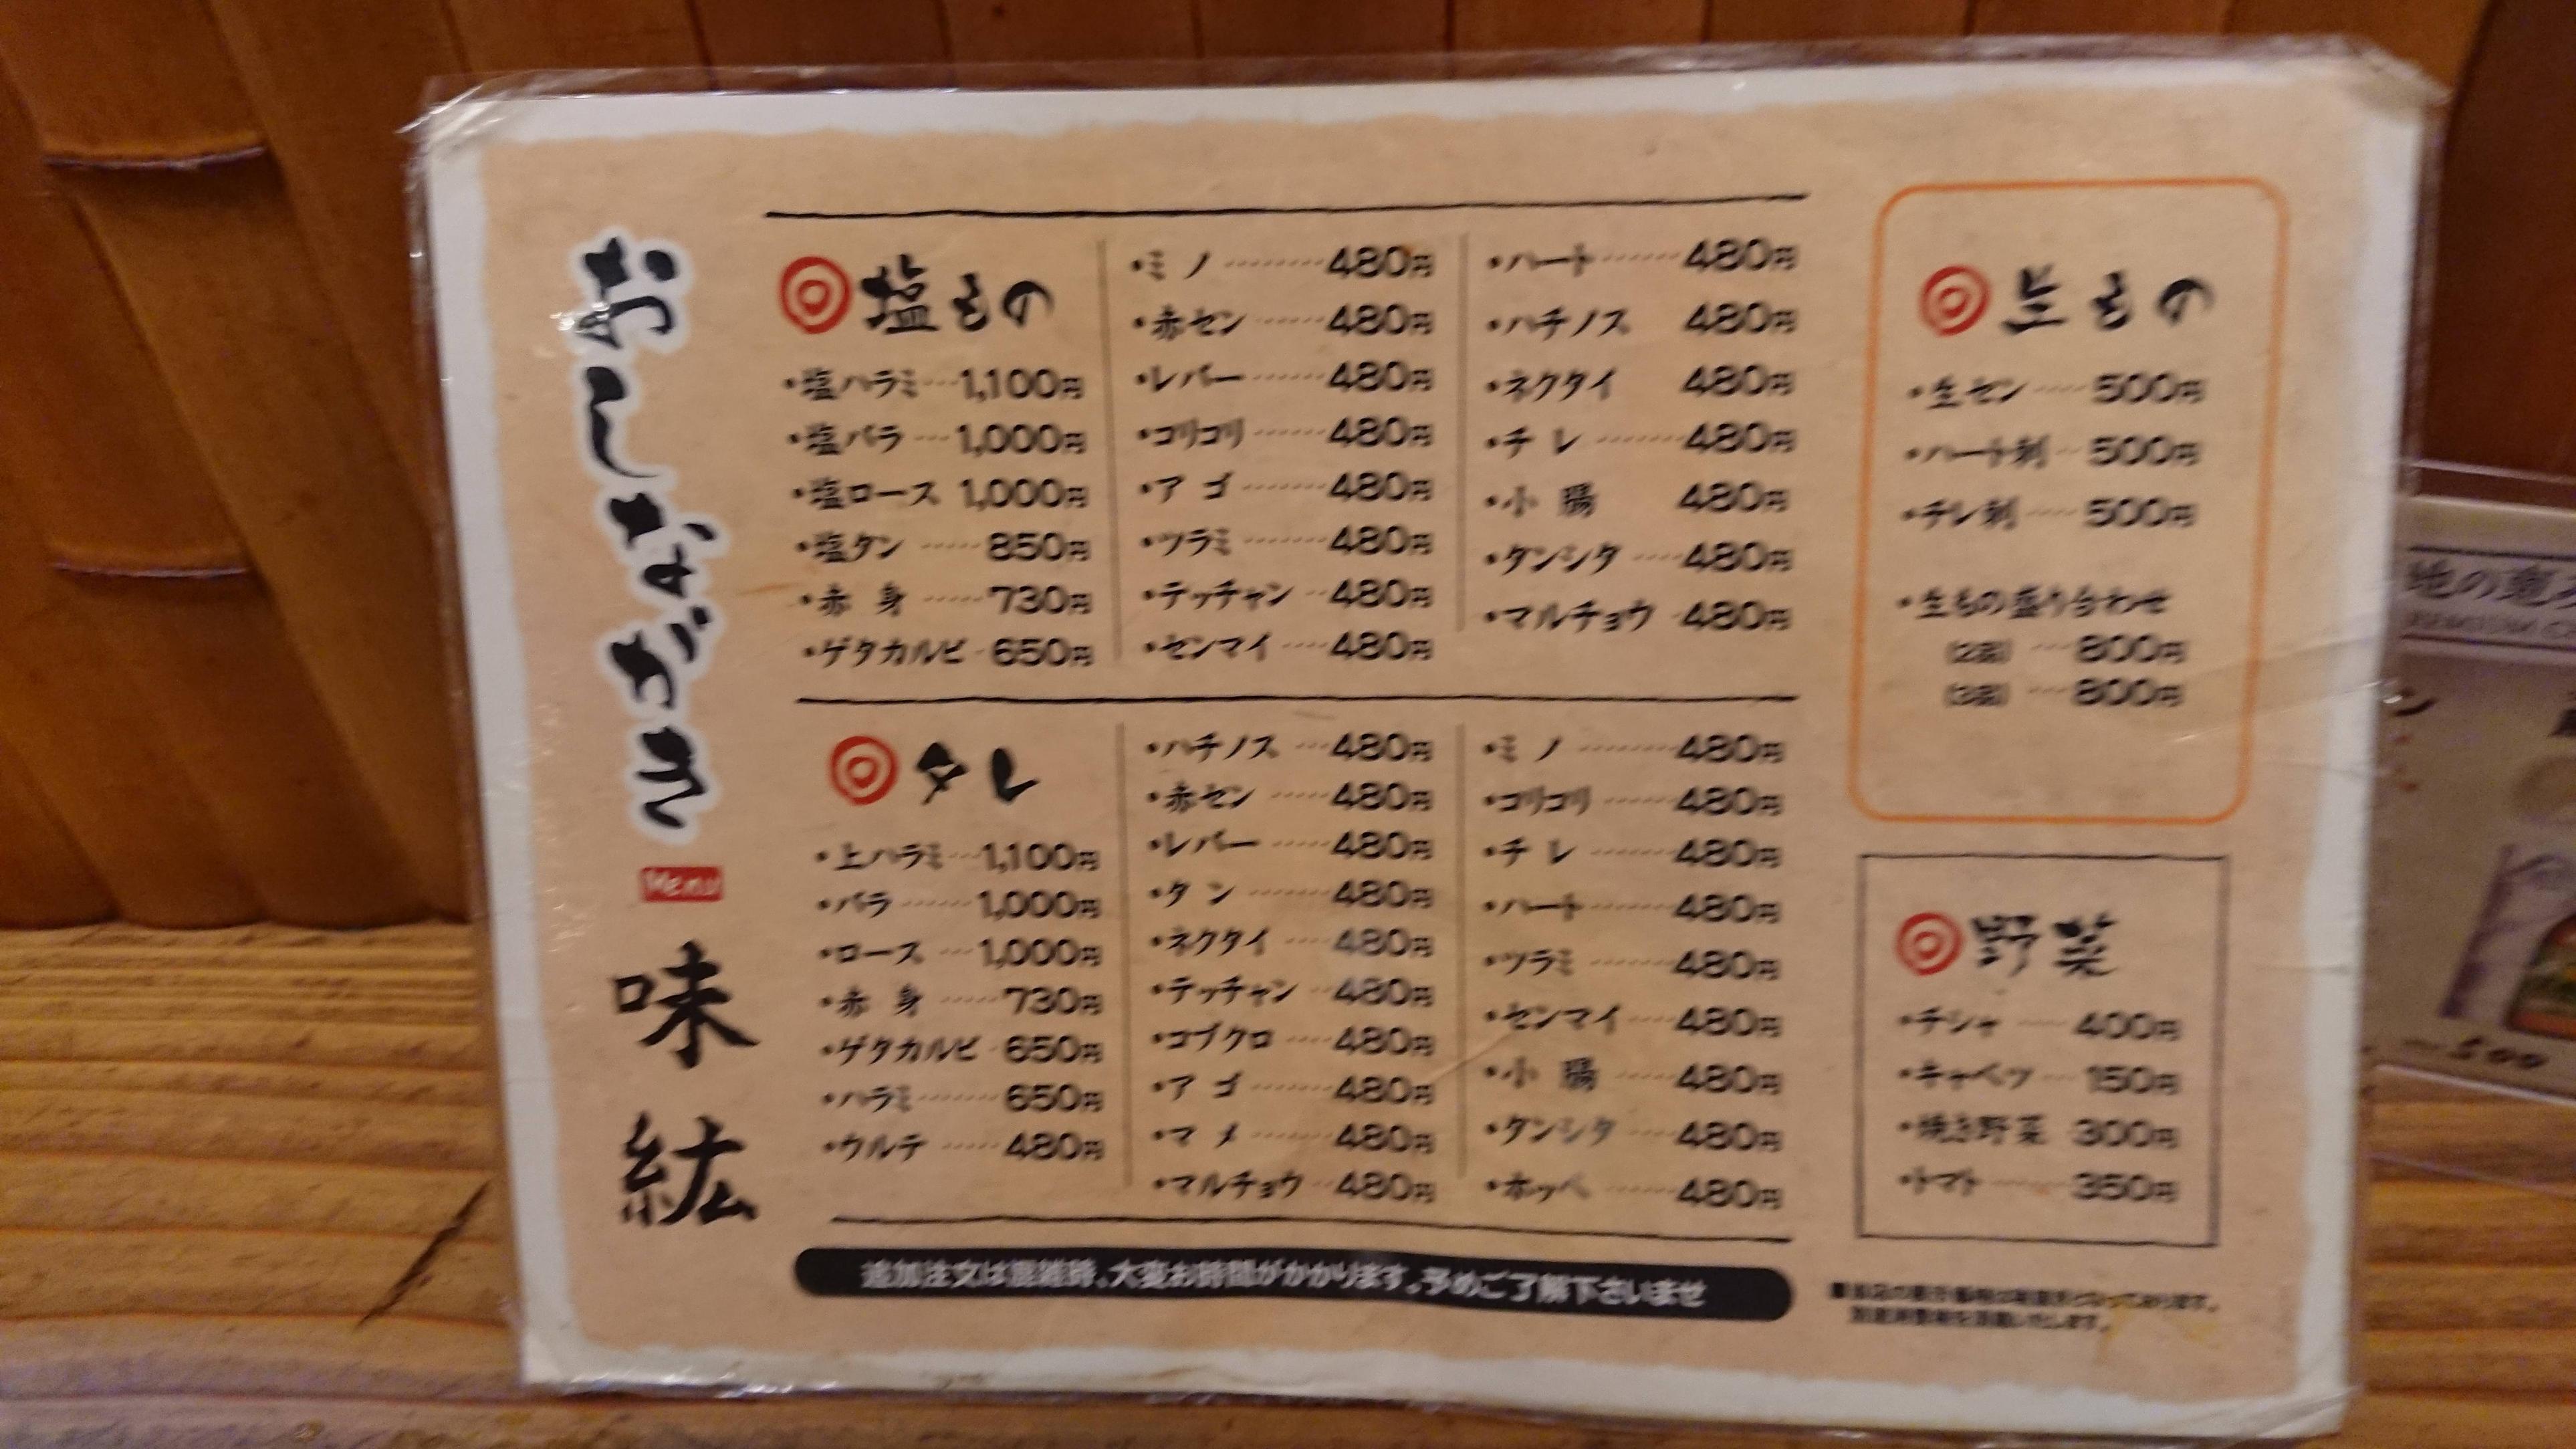 おしながき
Menu
味紘
塩もの
・塩ハラミ…1,100円
・塩バラ…1,000円
・塩ロース 1,000円
・塩タン……850円
・赤身……730円
・ゲタカルビ…650円
・ミノ………480円
・赤セン……480円
・レバー……480円
・コリコリ……480円
・アゴ………480円
・ツラミ……480円
・テッチャン…480円
・センマイ…480円
・ハート……480円
・ハチノス 480円
・ネクタイ 480円
・チレ………480円
・小腸 480円
・タンシタ…480円
・マルチョウ…480円
タレ
・上ハラミ…1,100円
・バラ……1,000円
・ロース…1,000円
・赤身……730円
・ゲタカルビ…650円
・ハラミ……650円
・ウルテ……480円
・ハチノス…480円
・赤セン……480円
・レバー……480円
・タン………480円
・ネクタイ…480円
・テッチャン…480円
・コブクロ…480円
・アゴ………480円
・マメ………480円
・マルチョウ…480円
・ミノ………480円
・コリコリ……480円
・チレ………480円
・ハート……480円
・ツラミ……480円
・センマイ…480円
・小腸……480円
・タンシタ…480円
・ホッペ……480円
追加注文は混雑時、大変お時間がかかります。予めご了解下さいませ
生もの
・生セン……500円
・ハート刺…500円
・チレ刺……500円
・生もの盛り合わせ
(2品)…800円
(3品)…800円
野菜
・チシャ……400円
・キャベツ…150円
・焼き野菜 300円
・トマト……350円
地の恵み
500